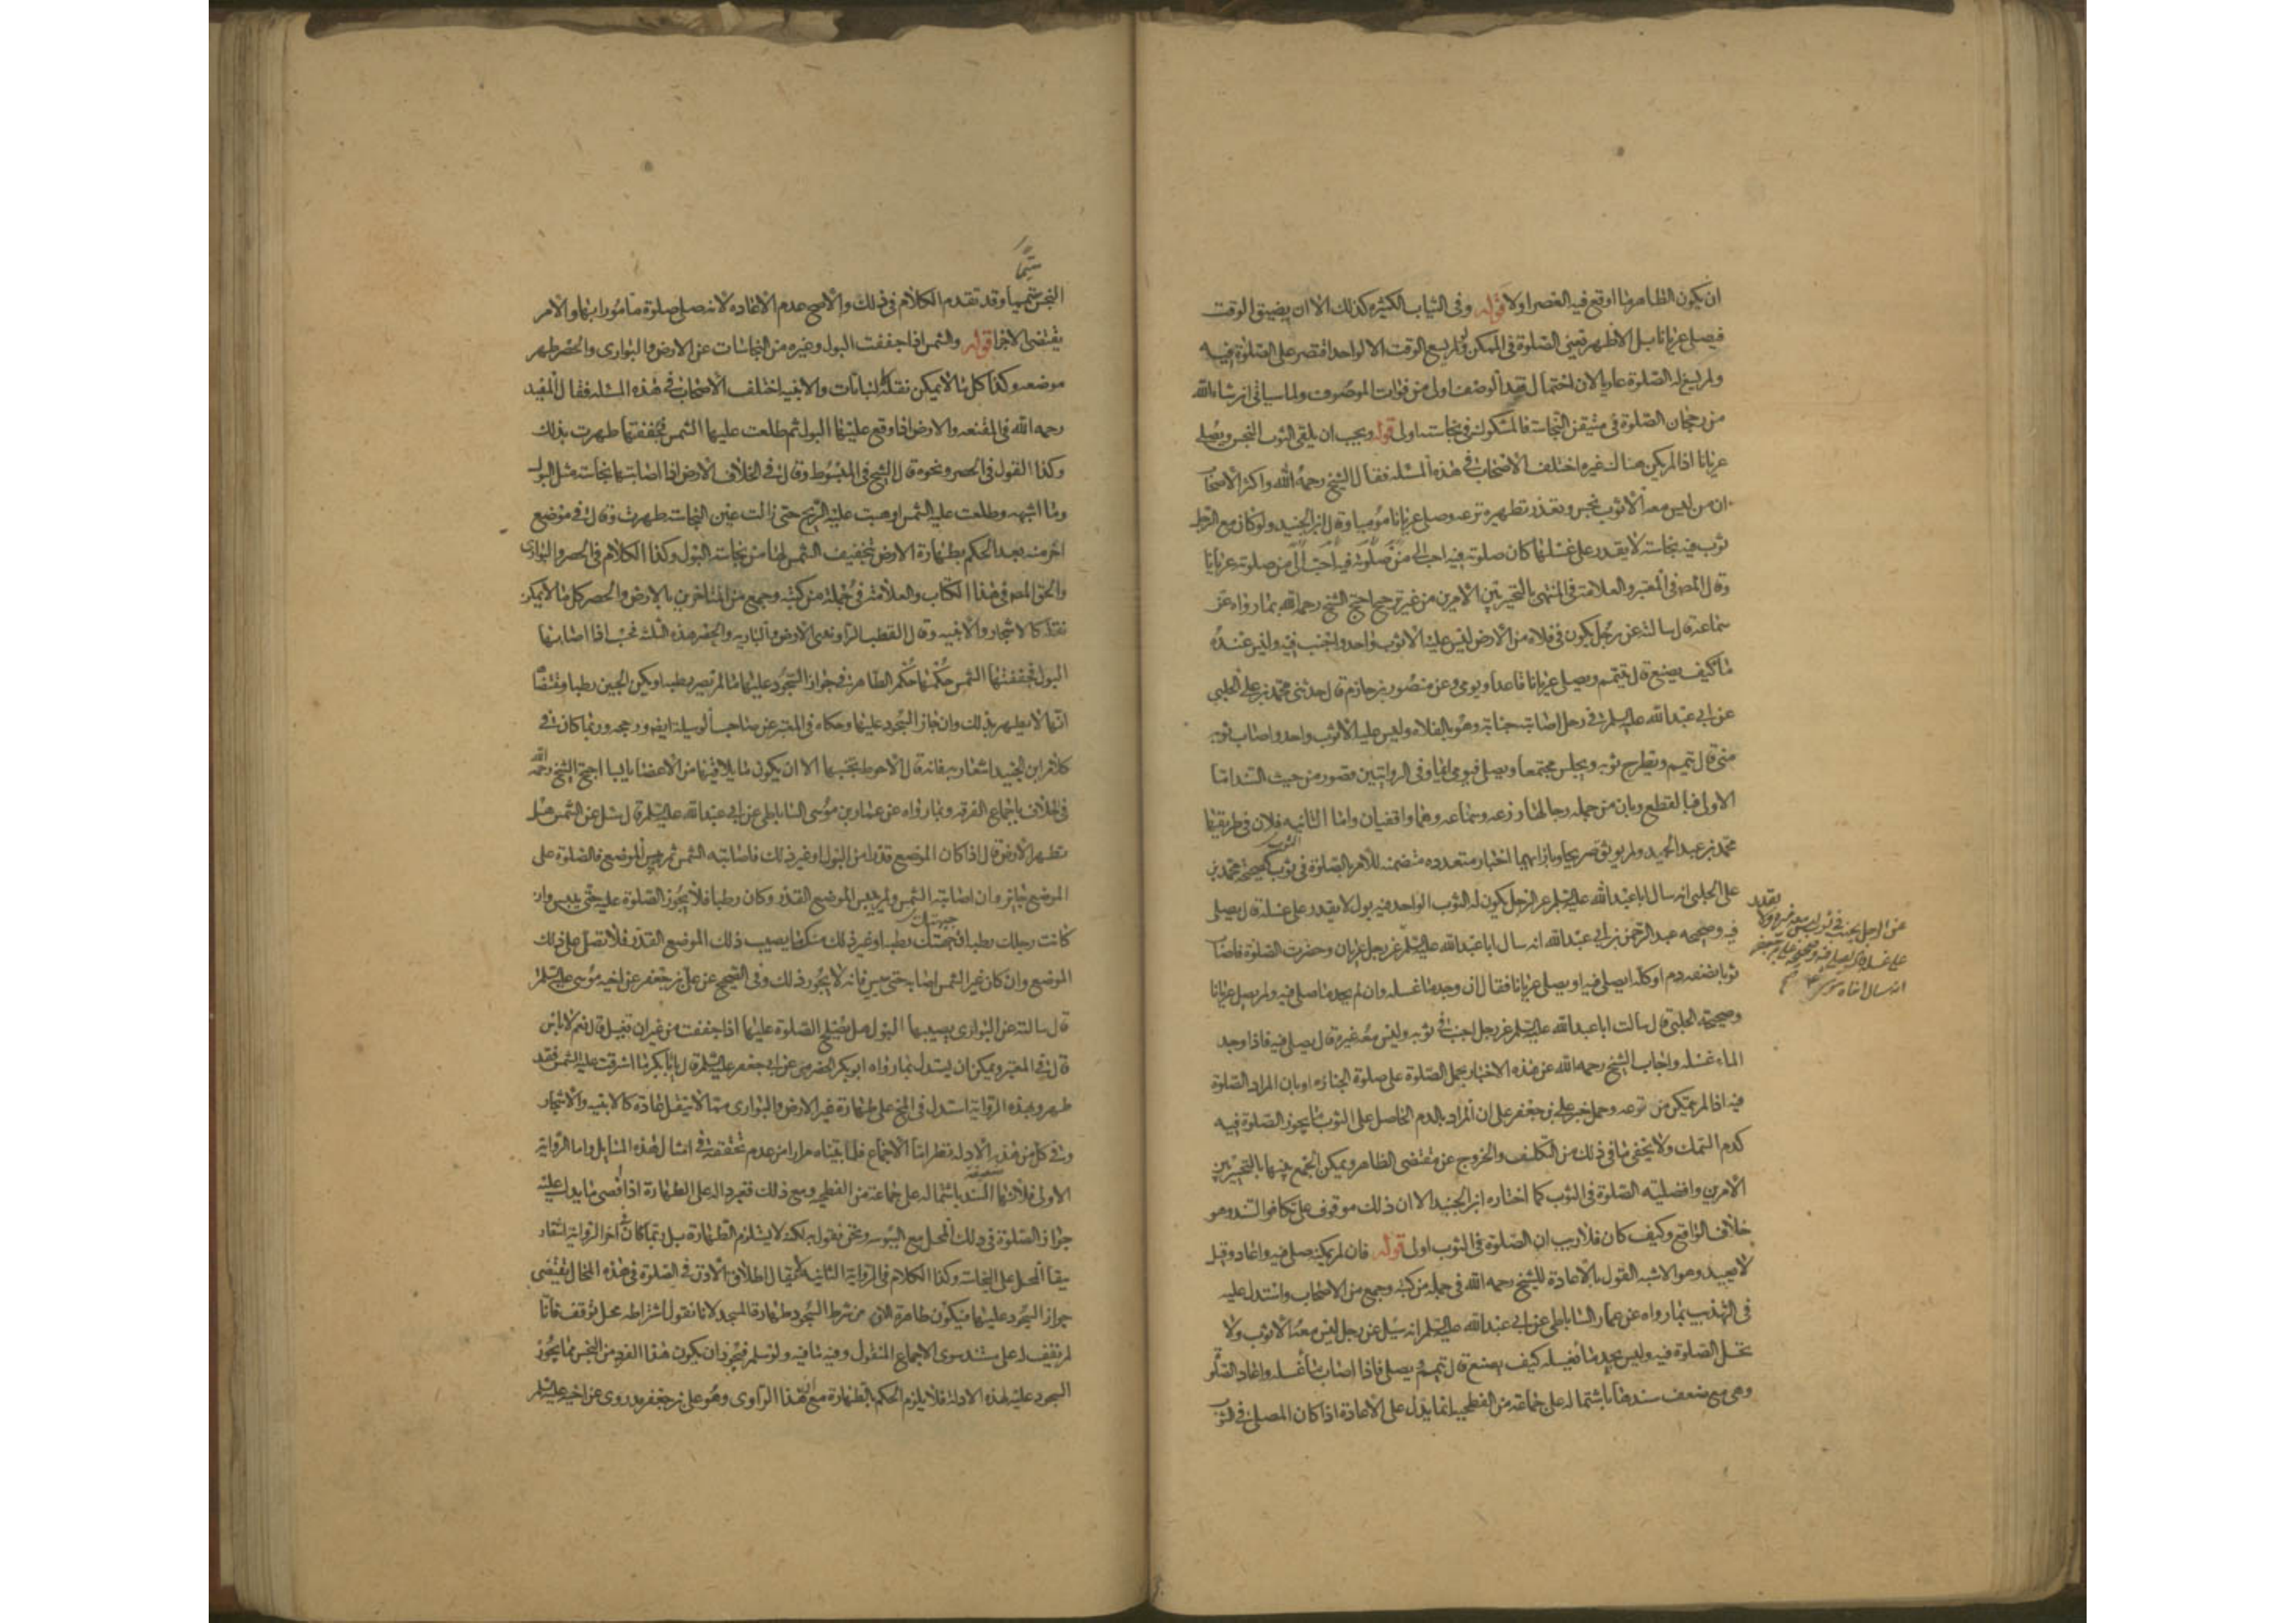 ان يكون الظاهر مما اوقع فيه العصر اولا قوله وفى الثياب الكثيرة كذلك الا ان يضيق الوقت
فيصلى عريانا بل الاظهر تعين الصلوة فى الممكن ولو لم يسع الوقت الا لواحد اقتصر على الصلوة فيه
ولم يسغ له الصلوة عاريا لان احتمال فقد الوصف اولى من فوات الموصوف ولما سياتى ان شاء الله
من رجحان الصلوة فى متيقن النجاسة فالمشكوك فى نجاسته اولى قوله ويجب ان يلقى الثوب النجس ويصلى
عريانا اذا لم يكن هناك غيره اختلف الاصحاب فى هذه المسئله فقال الشيخ رحمه الله واكثر الاصحاب
ان من ليس معه الا ثوب نجس وتعذر تطهيره نزعه وصلى عريانا موميا وقال ابن الجنيد ولو كان مع الرجل
ثوب فيه نجاسة لا يقدر على غسلها كان صلوته فيه احب الى من صلوته فيه احب الى من صلوته عريانا
وقال المصه فى المعتبر والعلامة فى المنتهى بالتخيير بين الامرين من غير ترجيح احتج الشيخ رحمه الله بما رواه عن
سماعة قال سالته عن رجل يكون فى فلاة من الارض ليس عليه الا ثوب واحد واجنب فيه وليس عنده
ماء كيف يصنع قال يتيمم ويصلى عريانا قاعدا ويومى وعن منصور بن حازم قال حدثنى محمد بن على الحلبى
عن ابى عبد الله عليه السلم فى رجل اصابته جنابة وهو بالفلاة وليس عليه الا ثوب واحد واصاب ثوبه
منى قال يتيمم ويطرح ثوبه ويجلس مجتمعا ويصلى فيومى ايماء وفى الروايتين قصور من حيث السند اما
الاولى فبالقطع وبان من جمله رجالها زرعه وسماعه وهما واقفيان واما الثانيه فلان فى طريقها
محمد بن عبد الحميد ولم يوثق صريحا وبازائهما اخبار متعدده متضمنه للامر بالصلوة فى الثوب كصحيحة محمد بن
على الحلبى انه سال ابا عبد الله عليه السلم عن الرجل يكون له الثوب الواحد فيه بول لا يقدر على غسله قال يصلى
فيه وصحيحه عبد الرحمن بن ابى عبد الله انه سال ابا عبد الله عليه السلم عن رجل عريان وحضرت الصلوة فاصاب
ثوبا نصفه دم او كله ايصلى فيه او يصلى عريانا فقال ان وجد ماء غسله وان لم يجد ماء صلى فيه ولم يصل عريانا
وصحيحة الحلبى قال سالت ابا عبد الله عليه السلم عن رجل اجنب فى ثوبه وليس معه غيره قال يصلى فيه فاذا وجد
الماء غسله واجاب الشيخ رحمه الله عن هذه الاخبار بحمل الصلوة على صلوة الجنازه او بان المراد الصلوة
فيه اذا لم يتمكن من نزعه وحمل خبر على بن جعفر على ان المراد بالدم الحاصل على الثوب ما يجوز الصلوة فيه
كدم السمك ولا يخفى ما فى ذلك من التكلف والخروج عن مقتضى الظاهر ويمكن الجمع بينها بالتخيير بين
الامرين وافضليه الصلوة فى الثوب كما اختاره ابن الجنيد الا ان ذلك موقوف على تكافوا السند وهو
خلاف الواقع وكيف كان فلا ريب ان الصلوة فى الثوب اولى قوله فان لم يمكنه صلى فيه واعاد وقيل
لا يعيد وهو الاشبه القول بالاعادة للشيخ رحمه الله فى جملة من كتبه وجمع من الاصحاب واستدل عليه
فى التهذيب بما رواه عن عمار الساباطى عن ابى عبد الله عليه السلم انه سئل عن رجل ليس معه الا ثوب ولا
تحل الصلوة فيه وليس يجد ماء يغسله كيف يصنع قال يتيمم ويصلى فاذا اصاب ماء غسله واعاد الصلوة
وهى مع ضعف سندها باشتماله على جماعة من الفطحيه انما يدل على الاعادة اذا كان المصلى فى الثوب
عن الرجل يجنب فى ثوب ليس معه غيره ولا يقدر
على غسله قال يصلى فيه وصحيحة على بن جعفر
انه سال اخاه موسى
متيمما
النجس متيمما وقد تقدم الكلام فى ذلك والاصح عدم الاعاده لانه صلى صلوة مامورا بها والامر
يقتضى الاجزاء قوله والشمس اذا جففت البول وغيره من النجاسات عن الارض والبوارى والحصر طهر
موضعه وكذا كل ما لا يمكن نقله كالنباتات والابنيه اختلف الاصحاب فى هذه المسئله فقال المفيد
رحمه الله فى المقنعه والارض اذا وقع عليها البول ثم طلعت عليها الشمس فجففتها طهرت بذلك
وكذا القول فى الحصر ونحوه قال الشيخ فى المبسوط وقال فى الخلاف الارض اذا اصابتها نجاسة مثل البول
وما اشبهه وطلعت عليه الشمس او هبت عليه الريح حتى زالت عين النجاسة طهرت وقال فى موضع
اخر منه بعد الحكم بطهارة الارض بتجفيف الشمس لها من نجاسة البول وكذا الكلام فى الحصر والبوارى
والحق المصه فى هذا الكتاب والعلامة فى جملة من كتبه وجمع من المتاخرين بالارض والحصر كل ما لا يمكن
نقله كالاشجار والابنيه وقال القطب الراوندى الارض والباريه والحصر هذه الثلثة فحسب اذا اصابها
البول فجففتها الشمس حكمها حكم الطاهر فى جواز السجود عليها ما لم تصر رطبه او يكن الجبين رطبا ومقتضاه
انها لا يطهر بذلك وان جاز السجود عليها وحكاه فى المعتبر عن صاحب الوسيلة ايضه ورجحه وربما كان فى
كلام ابن الجنيد اشعار به فانه قال الاحوط تجنبها الا ان يكون ما يلاقيها من الاعضاء يابسا احتج الشيخ رحمه الله
فى الخلاف باجماع الفرقه وبما رواه عن عمار بن موسى الساباطى عن ابى عبد الله عليه السلم قال سئل عن الشمس هل
تطهر الارض قال اذا كان الموضع قذرا من البول او غير ذلك فاصابته الشمس ثم يبس الموضع فالصلوة على
الموضع جايزه وان اصابته الشمس ولم ييبس الموضع القذر وكان رطبا فلا يجوز الصلوة عليه حتى ييبس وان
كانت رجلك رطبة او جبهتك رطبه او غير ذلك منك ما يصيب ذلك الموضع القذر فلا تصل على ذلك
الموضع وان كان غير الشمس اصابه حتى يبس فانه لا يجوز ذلك وفى الصحيح عن على بن جعفر عن اخيه موسى عليه السلم
قال سالته عن البوارى يصيبها البول هل يصلح الصلوة عليها اذا جففت من غير ان تغسل قال نعم لا باس
قال فى المعتبر ويمكن ان يستدل بما رواه ابو بكر الحضرمى عن ابى جعفر عليه السلم قال يا ابا بكر ما اشرقت عليه الشمس فقد
طهر وبهذه الرواية استدل فى المخ على طهارة غير الارض والبوارى مما لا ينقل عادة كالابنيه والاشجار
وفى كل من هذه الادلة نظر اما الاجماع فلما بيناه مرارا من عدم تحققه فى امثال هذه المسايل واما الرواية
الاولى فلانها ضعيفة السند باشتماله على جماعة من الفطحيه ومع ذلك فغير داله على الطهارة اذ اقصى ما يدل عليه
جواز الصلوة فى ذلك المحل مع اليبوسه ونحن نقول به لكنه لا يستلزم الطهارة بل ربما كان فى اخر الرواية اشعار
ببقاء المحل على النجاسة وكذا الكلام فى الرواية الثانيه لا يقال اطلاق الاذن فى الصلوة فى هذه المحال يقتضى
جواز السجود عليها فيكون طاهرة لان من شرط السجود طهارة المسجد لانا نقول اشتراطه محل توقف فانا
لم نقف له على مستند سوى الاجماع المنقول وفيه ما فيه ولو سلم فيجوز ان يكون هذا الفرد من النجس مما يجوز
السجود عليه لهذه الادلة فلا يلزم الحكم بالطهارة مع ان هذا الراوى وهو على بن جعفر قد روى عن اخيه عليه السلم